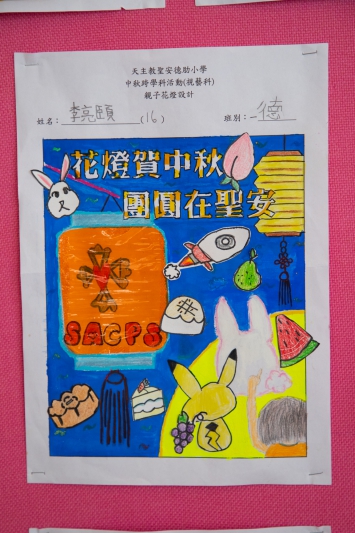 天主教聖安德肋小學
中秋跨學科活動(視藝科)
親子花燈設計
姓名：李亮頤(16) 班別：一德
花燈賀中秋
團圓在聖安
SACPS